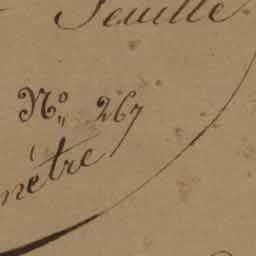 Feuille
No 267
mètre